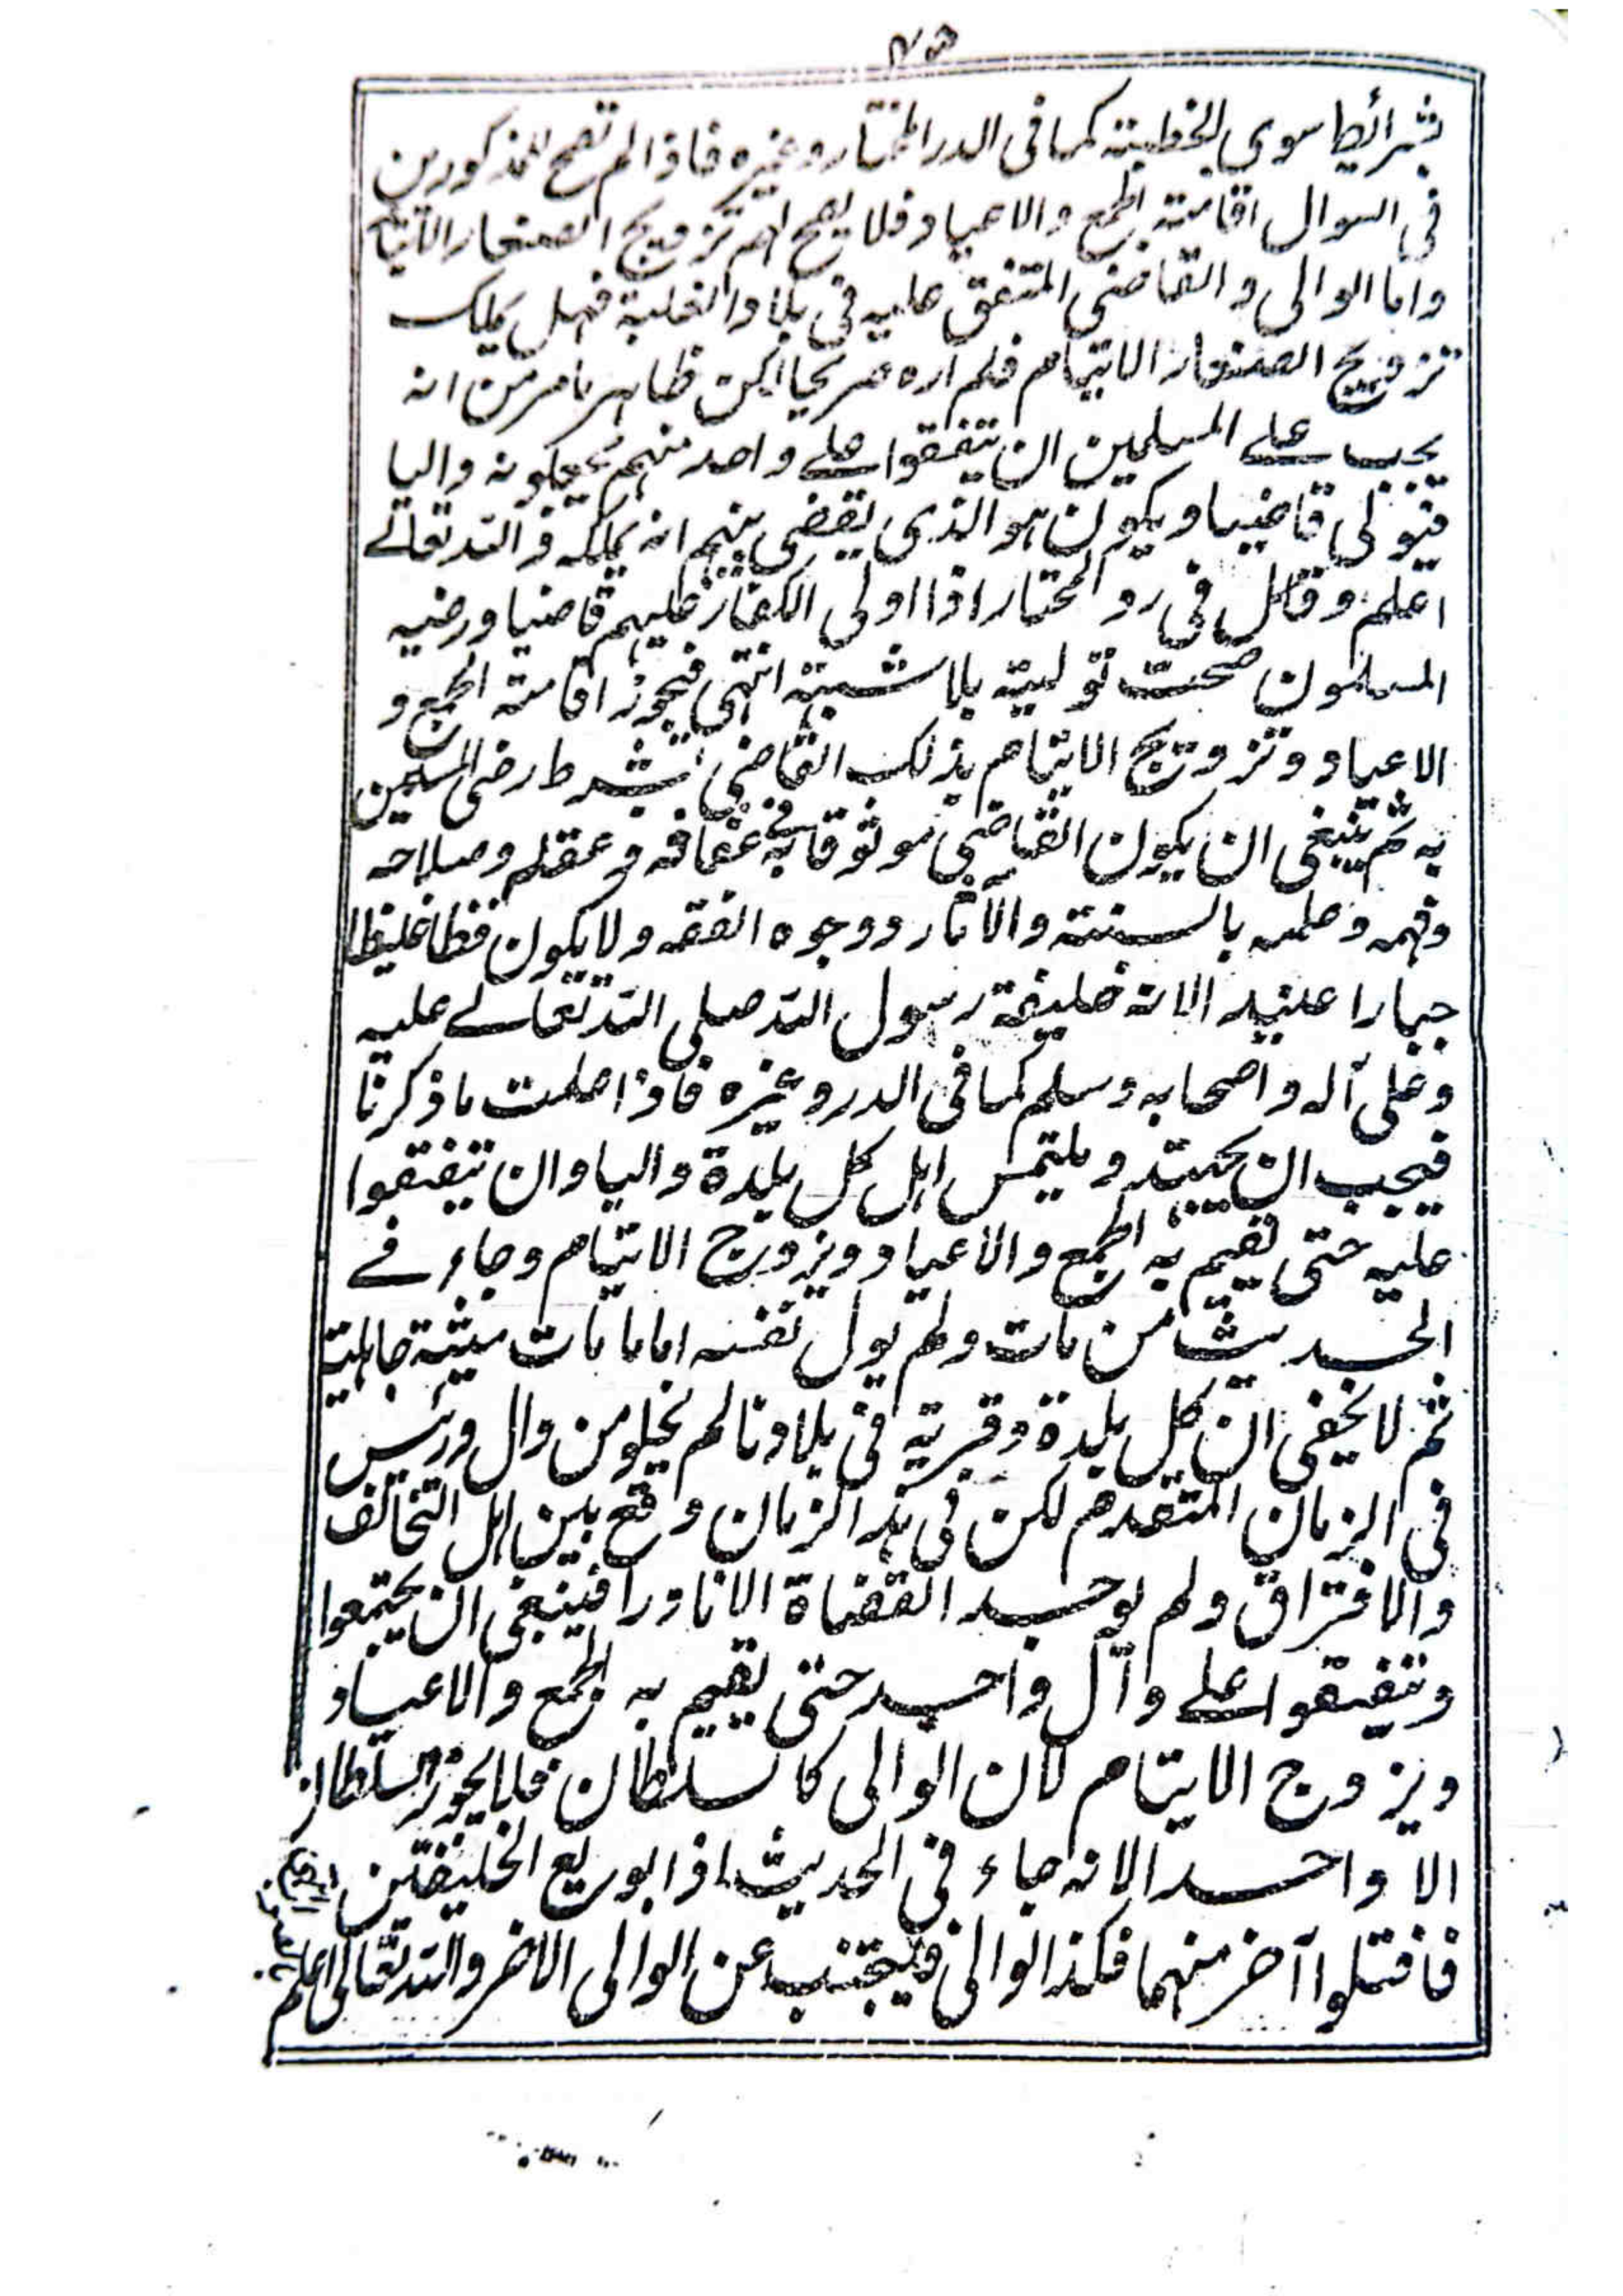 بشرائطها سوى الخطبة كما فى الدر المختار وغيره فاذا لم تصح للمذكورين
فى السوال اقامة الجمع والاعياد فلا يصح لهم تزويج الصغار الايتام
واما الوالى والقاضى المتفق عليه فى بلاد الغلبة فهل يملك
تزويج الصغار الايتام فلم اره صريحا لكن ظاهر ما مر من انه
يجب على المسلمين ان يتفقوا على واحد منهم يجعلونه واليا
فيولى قاضيا ويكون هو الذى يقضى بينهم انه يملكه والله تعالى
اعلم وقال فى رد المحتار اذا اولى الكفار عليهم قاضيا ورضيه
المسلمون صحت توليته بلا شبهة انتهى فيجوز اقامة الجمع و
الاعياد وتزويج الايتام بذلك القاضى بشرط رضى المسلمين
به ثم ينبغى ان يكون القاضى موثوقا به فى عفافه وعقله وصلاحه
وفهمه وعلمه بالسنة والآثار ووجوه الفقه ولا يكون فظا غليظا
جبارا عنيدا لانه خليفة رسول الله صلى الله تعالى عليه
وعلى آله واصحابه وسلم كما فى الدر وغيره فاذا علمت ما ذكرنا
فيجب ان يجتهد ويلتمس اهل كل بلدة واليا وان يتفقوا
عليه حتى تقيم به الجمع والاعياد ويزوج الايتام وجاء فى
الحديث من مات ولم يول نفسه اماما مات ميتة جاهلية
ثم لا يخفى ان كل بلدة وقرية فى بلادنا لم يخلو من وال ورئس
فى الزمان المتقدم لكن فى هذا الزمان وقع بين اهل التخالف
والافتراق ولم يوجد القضاة الا نادرا فينبغى ان يجتمعوا
ويتفقوا على وآل واحد حتى يقيم به الجمع والاعياد
ويزوج الايتام لان الوالى كالسلطان فلا يجوز السلطان
الا واحد لانه جاء فى الحديث اذا بويع الخليفتين
فاقتلوا آخر منهما فكذا الوالى فيجتنب عن الوالى الاخر والله تعالى اعلم